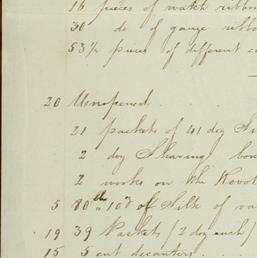 16 pieces of watch ribbon
30 do of gauze ribbo
53½ pieces of different co
20 Unopened
21 packets of 41 doz
2 doz Shaving box
2 works on the Revol
5 lb 10 of Silk of va
19 39 Packets (3 doz each)
15 5 cut decanters